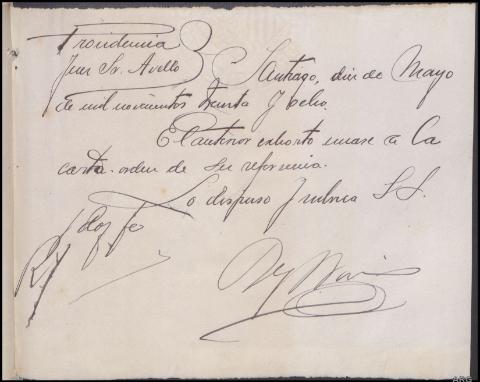 Providencia
Juez Sr. Avello
Santiago, diez de Mayo
de mil novecientos treinta y ocho.
El anterior exhorto unase a la
carta-orden de su referencia.
Lo dispuso y rubrica S.S.
doy fe